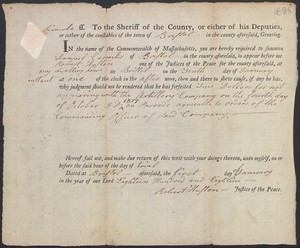 Lincoln ss. To the Sheriff of the County, or either of his Deputies,
or either of the constables of the town of Bristol in the county aforesaid, Greeting.
IN the name of the Commonwealth of Massachusetts, you are hereby required to summon
of Bristol
in the county aforesaid, to appear before me
Robert one of the Justices of the Peace for the county aforesaid, at
my dwelling house in Bristol on the day of January
at one of the clock in the after noon, then and there to shew cause, if any he has,
why judgment should not be rendered that he has forfeited Dollars for not
appearing with the Company on the fourth day
of October agreeable to orders of the
Commanding Officer of said Company.
Hereof fail not, and make due return of this writ with your doings therein, unto myself, on or
before the said hour of trial
Dated at Bristol aforesaid, the first day of January
in the year of our Lord Eighteen Hundred and Eighteen
Robert Justice of the Peace.